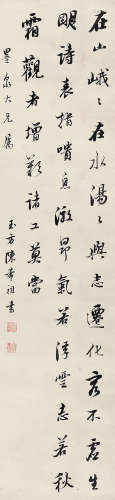 在山峨峨在水湯湯與志遷化容不虛生
眀詩表指嘖息激昻氣若浮雲志若秋
霜觀者增歎諸工莫當
墨泉大兄屬
玉方陳希祖書